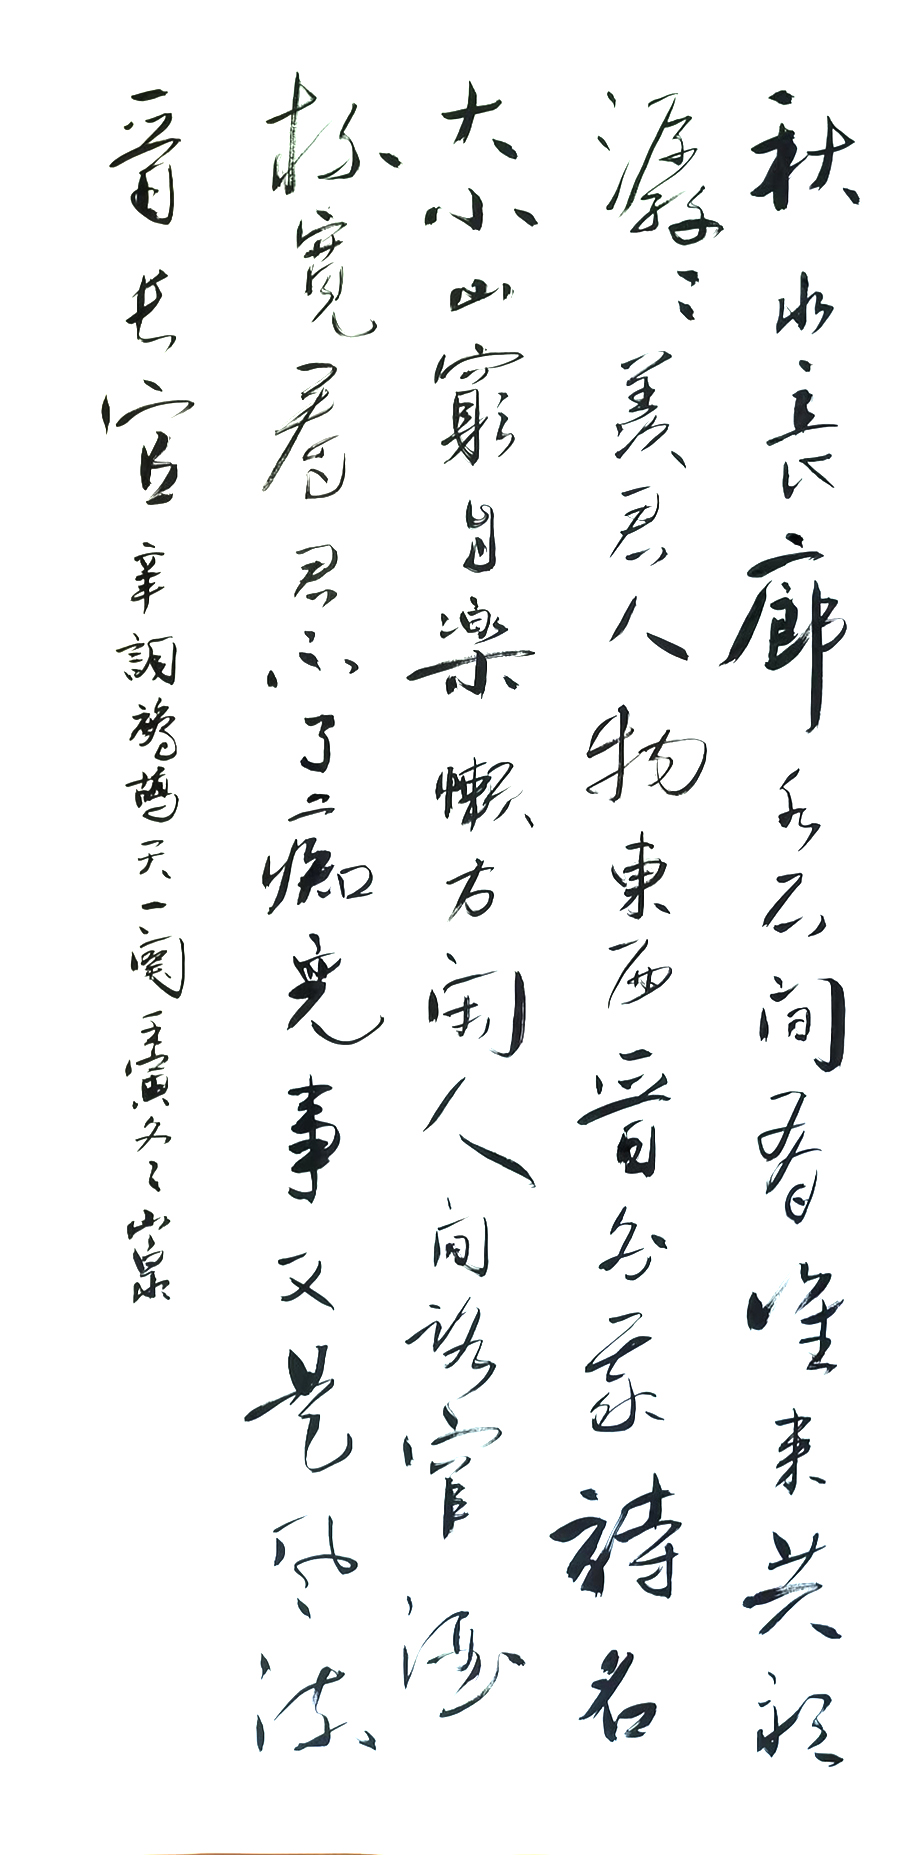 秋水長廊水石間有誰來共聽
潺〻羨君人物東西晉分我詩名
大小山窮自樂懶方閑人間路窄酒
杯寬看君不了〻痴兒事又是風流
晉長官辛詞鷓鴣天一闋壬寅冬〻山泉